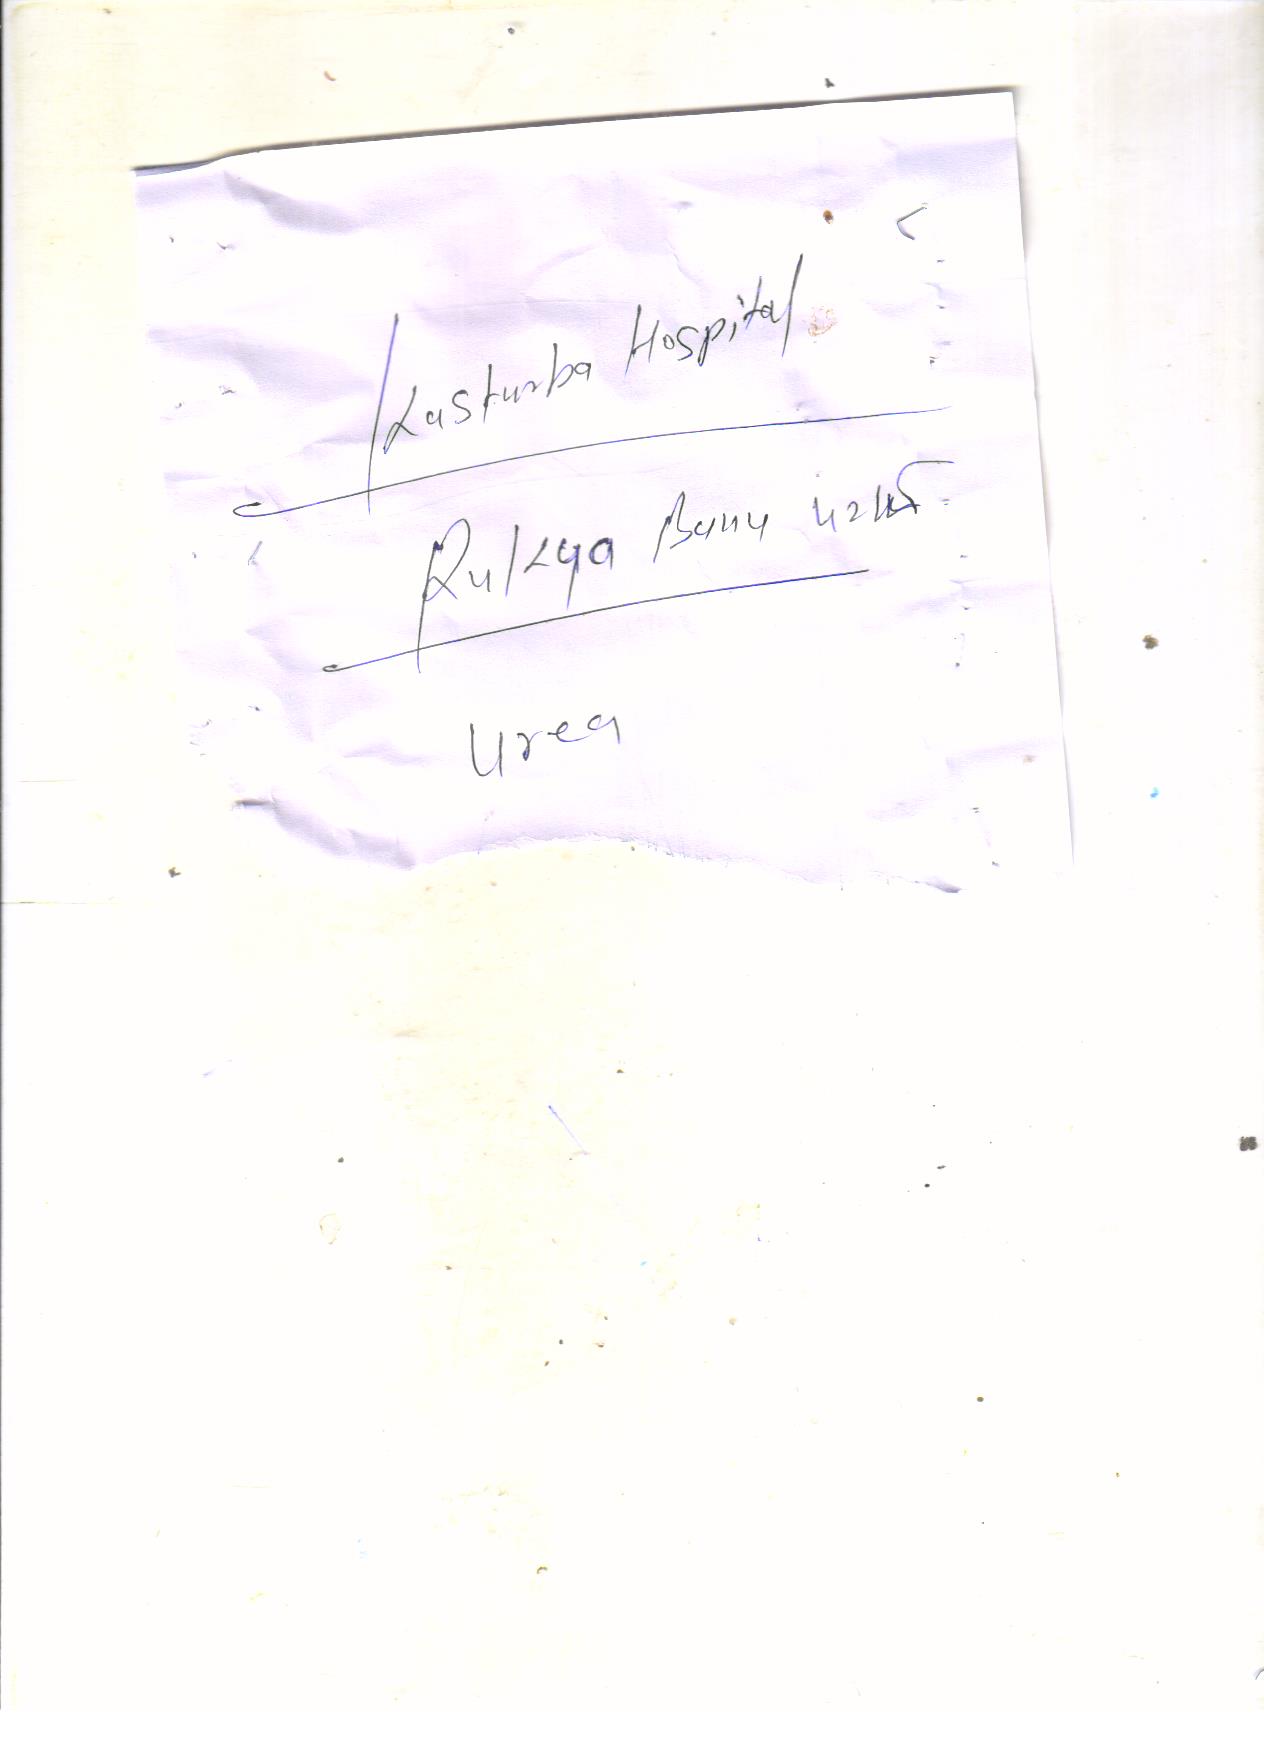 Kasturba Hospital
Rukya Banu 42y/F
Urea